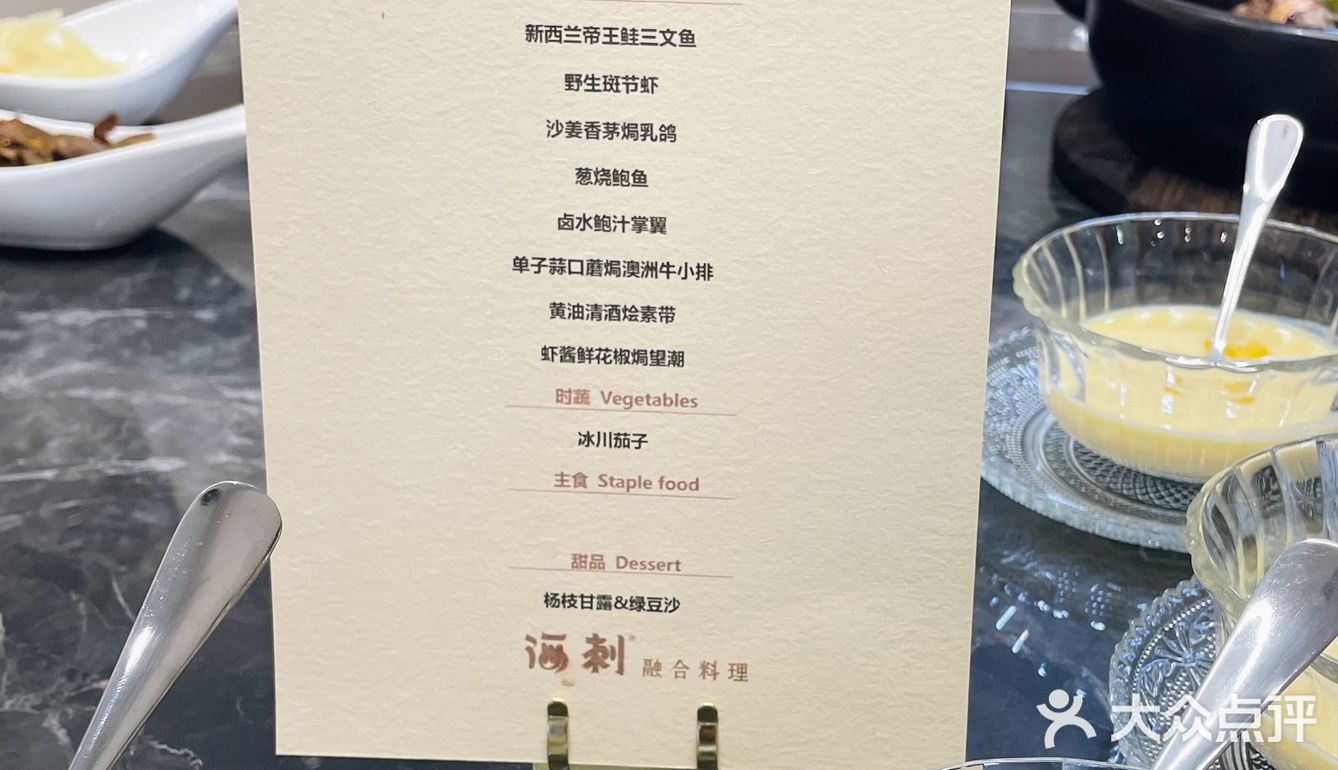 新西兰帝王鲑三文鱼
野生斑节虾
沙姜香茅焗乳鸽
葱烧鲍鱼
卤水鲍汁掌翼
单子蒜口蘑焗澳洲牛小排
黄油清酒烩素带
虾酱鲜花椒焗望潮
时蔬 Vegetables
冰川茄子
主食 Staple food
甜品 Dessert
杨枝甘露&绿豆沙
洒刺 融合料理
大众点评